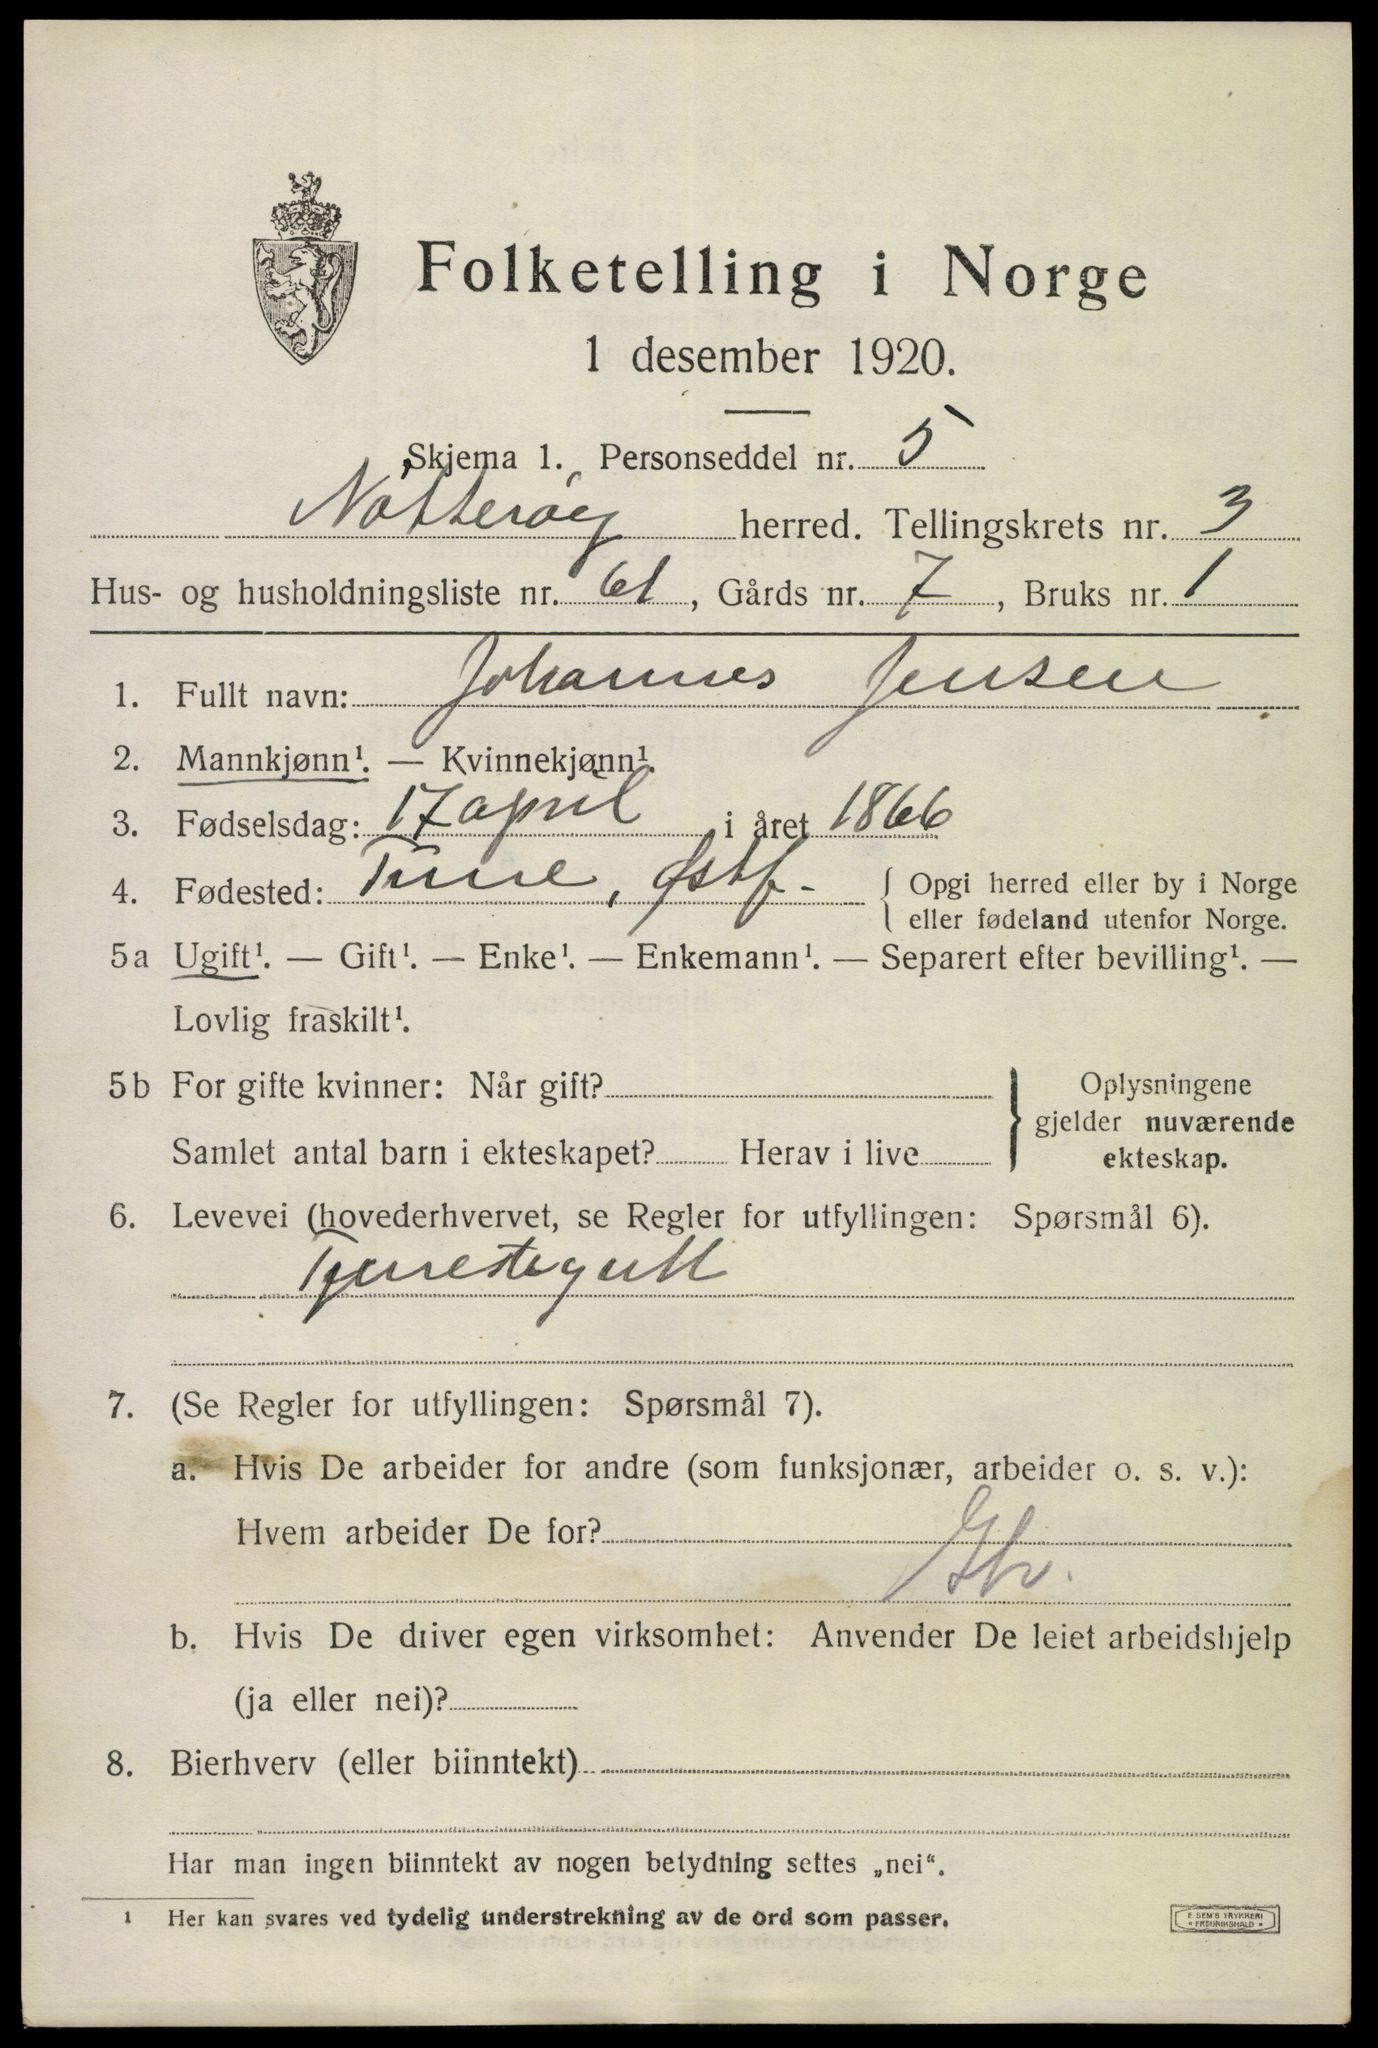 Folketelling i Norge
1 desember 1920.
Skjema 1. Personseddel nr. 5
Nøtterøy herred. Tellingskrets nr. 3
Hus- og husholdningsliste nr. 61, Gårds nr. 7, Bruks nr. 1
1. Fullt navn: Johannes Jensen
2. Mannkjønn¹. — Kvinnekjønn¹.
3. Fødselsdag: 17 april i året 1866
4. Fødested: Tune, Østf. { Opgi herred eller by i Norge
eller fødeland utenfor Norge.
5a Ugift¹. — Gift¹. — Enke¹. — Enkemann¹. — Separert efter bevilling¹. —
Lovlig fraskilt¹.
5b For gifte kvinner: Når gift?
Samlet antal barn i ekteskapet? Herav i live
} Oplysningene
gjelder nuværende
ekteskap.
6. Levevei (hovederhvervet, se Regler for utfyllingen: Spørsmål 6).
Tjenestegutt
7. (Se Regler for utfyllingen: Spørsmål 7).
a. Hvis De arbeider for andre (som funksjonær, arbeider o. s. v.):
Hvem arbeider De for?
b. Hvis De driver egen virksomhet: Anvender De leiet arbeidshjelp
(ja eller nei)?
8. Bierhverv (eller biinntekt)
Har man ingen biinntekt av nogen betydning settes „nei“.
1 Her kan svares ved tydelig understrekning av de ord som passer.
E. SEM'S TRYKKERI
FREDRIKSHALD